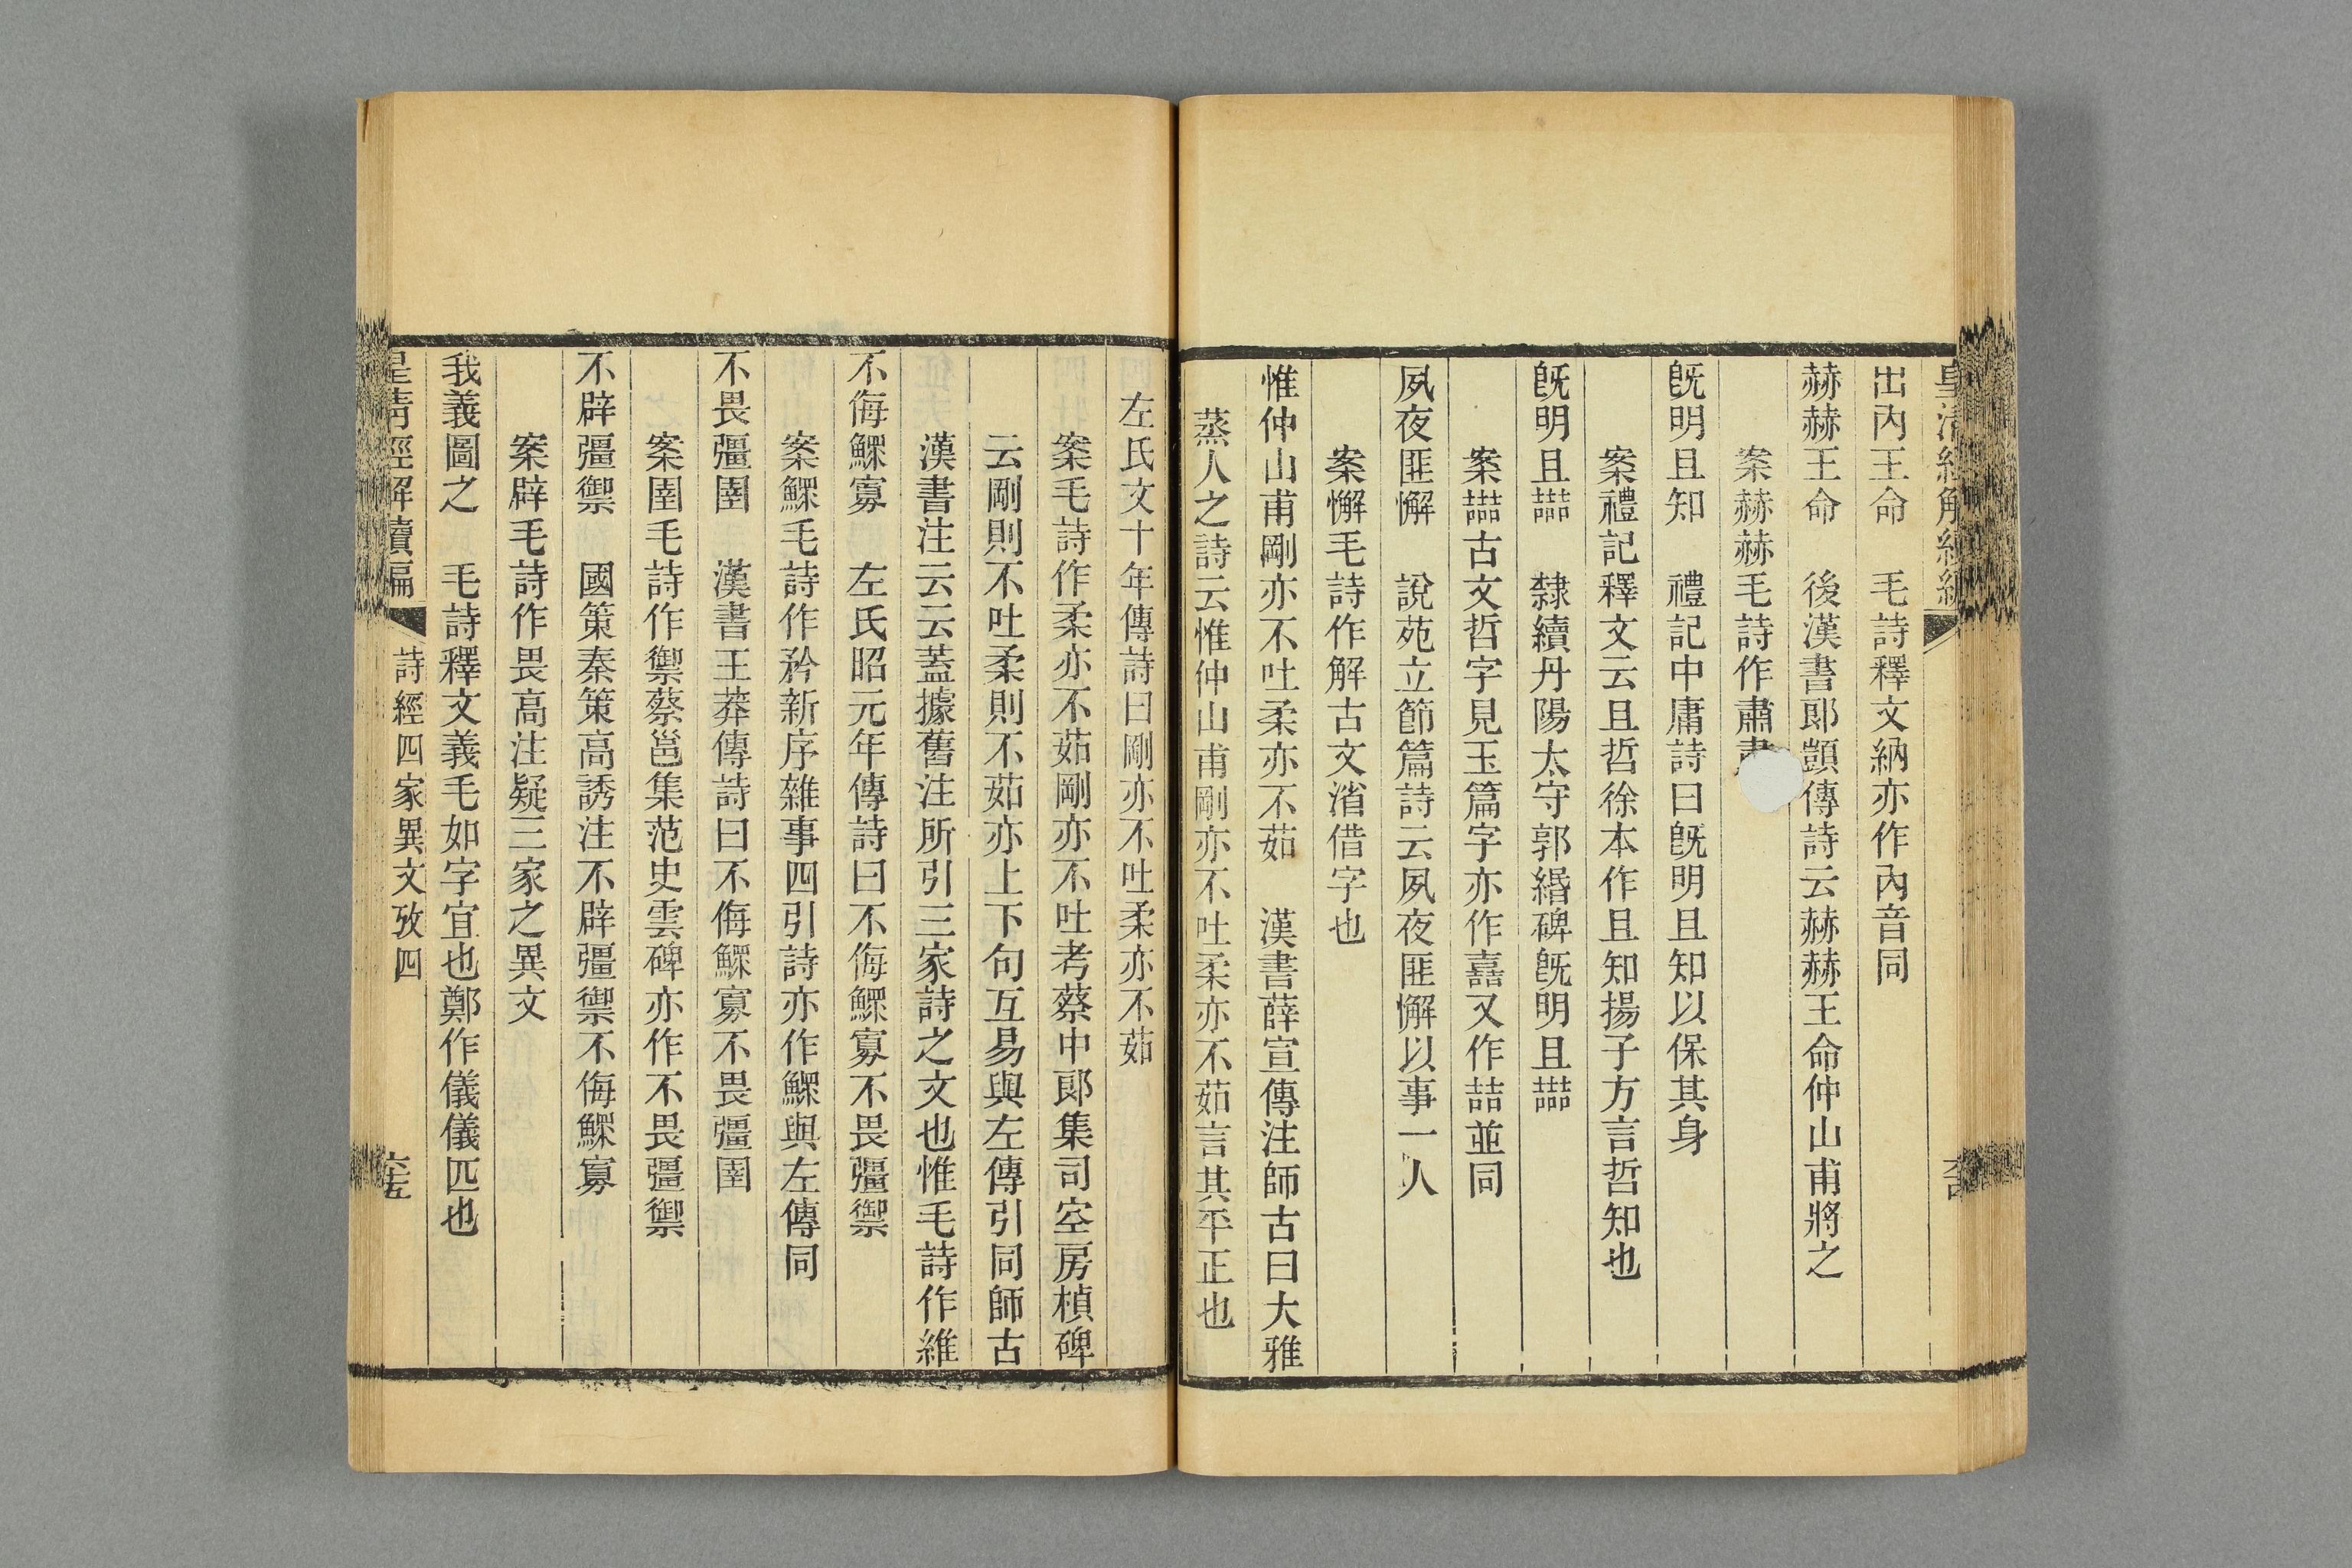 皇清經解續編
出內王命　毛詩釋文納亦作內音同
赫赫王命　後漢書郎顗傳詩云赫赫王命仲山甫將之
案赫赫毛詩作肅
旣明且知　禮記中庸詩曰旣明且知以保其身
案禮記釋文云且哲徐本作且知揚子方言哲知也
旣明且嚞　隸續丹陽太守郭緡碑旣明且嚞
案嚞古文哲字見玉篇字亦作嚞又作喆並同
夙夜匪懈　說苑立節篇詩云夙夜匪懈以事一人
案懈毛詩作解古文渻借字也
惟仲山甫剛亦不吐柔亦不茹　漢書薛宣傳注師古曰大雅
蒸人之詩云惟仲山甫剛亦不吐柔亦不茹言其平正也
左氏文十年傳詩曰剛亦不吐柔亦不茹
案毛詩作柔亦不茹剛亦不吐考蔡中郎集司空房楨碑
云剛則不吐柔則不茹亦上下句互易與左傳引同師古
漢書注云云蓋據舊注所引三家詩之文也惟毛詩作維
不侮鰥寡　左氏昭元年傳詩曰不侮鰥寡不畏彊禦
案鰥毛詩作矜新序雜事四引詩亦作鰥與左傳同
不畏彊圉　漢書王莽傳詩曰不侮鰥寡不畏彊圉
案圉毛詩作禦蔡邕集范史雲碑亦作不畏彊禦
不辟彊禦　國策秦策高誘注不辟彊禦不侮鰥寡
案辟毛詩作畏高注疑三家之異文
我義圖之　毛詩釋文義毛如字宜也鄭作儀儀匹也
皇清經解續編　詩經四家異文攷四　六十五